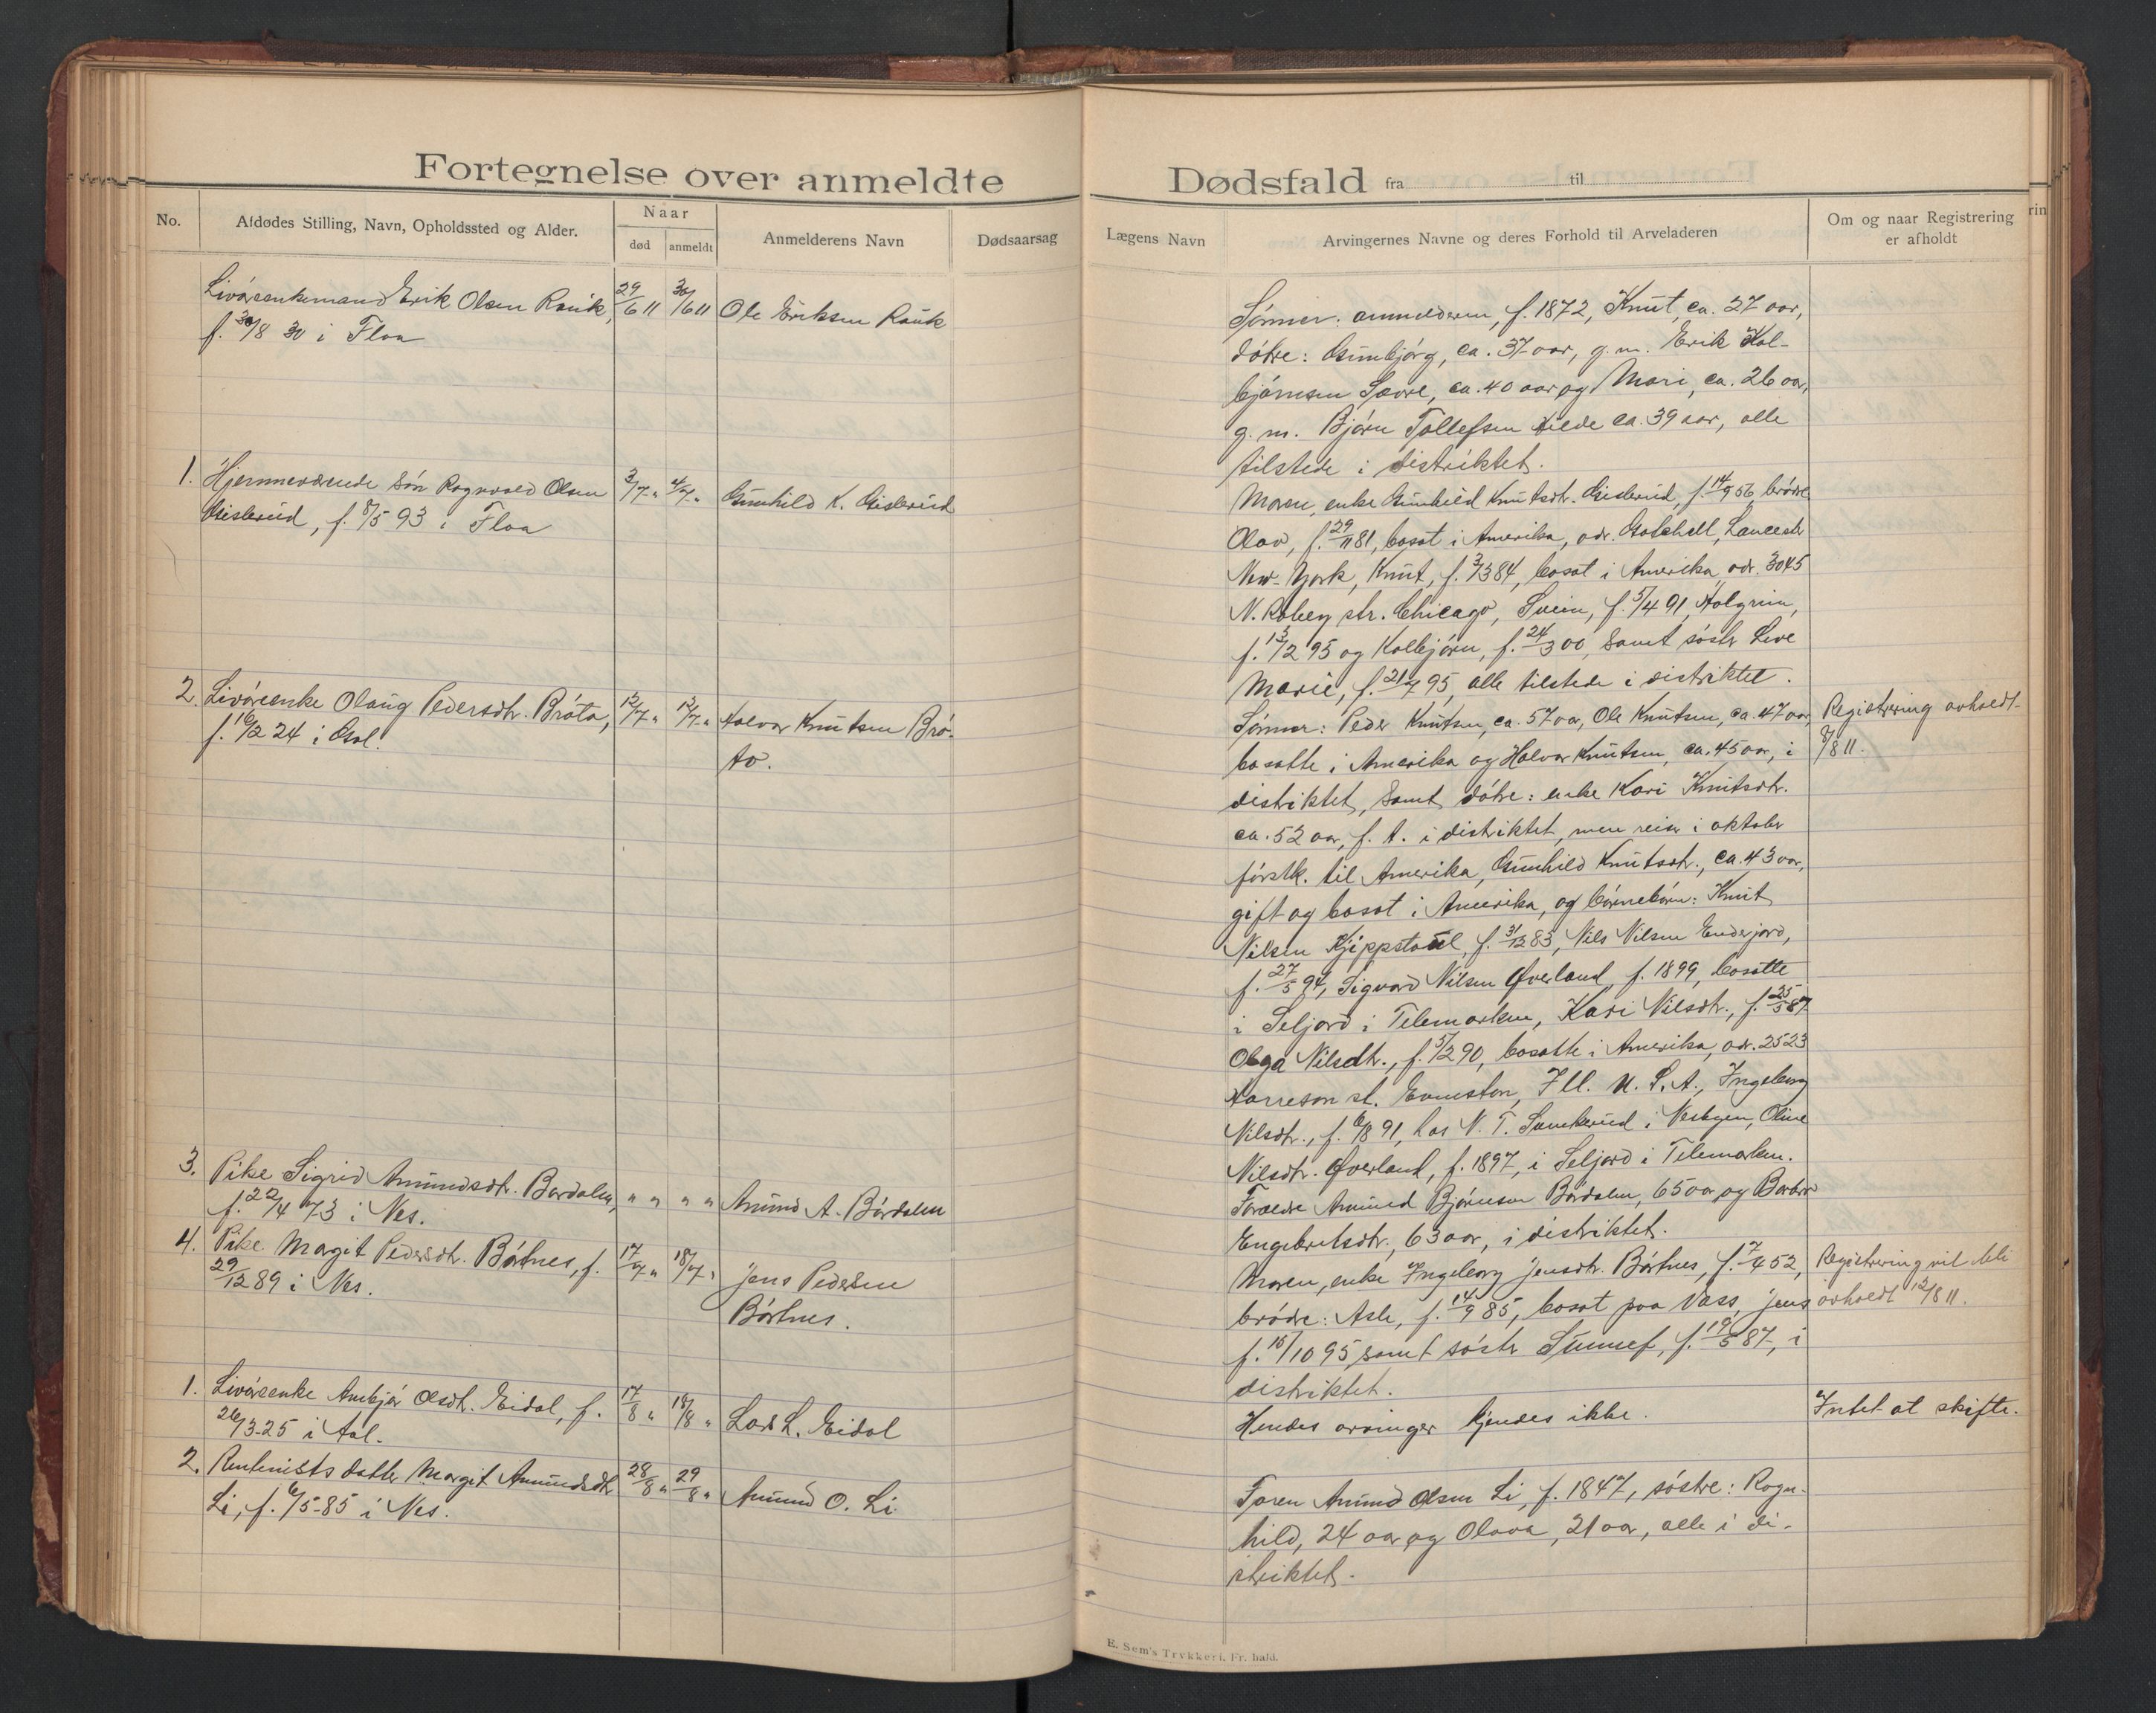 Fortegnelse over anmeldte Dødsfald fra til
No.
Afdødes Stilling, Navn, Opholdssted og Alder.
Naar
død
anmeldt
Anmelderens Navn
Dødsaarsag
Lægens Navn
Arvingernes Navne og deres Forhold til Arveladeren
Om og naar Registrering
er afholdt
rin
Livøreenkemand Erik Olsen Rauk, 29/6 11 30/6 11 Ole Eriksen Rauk
f. 30/8 30 i Flaa
Sønner: anmelderen, f. 1872, Knut, ca. 27 aar,
døtre: Gunbjørg, ca. 37 aar, g.m. Erik Kol-
bjørnsen Sævre, ca. 40 aar og Mari, ca. 26 aar,
g. m. Bjørn Tollefsen Hilde ca. 39 aar, alle
tilstede i distriktet.
1. Hjemmeværende søn Ragnvald Olsen 3/7 " 4/7 " Gunhild K. Gislerud
Gislerud, f. 8/5 93 i Flaa
Moren, enke Gunhild Knutsdtr. Gislerud, f. 14/9 56, brødre
Olav, f. 29/11 81, bosat i Amerika, adr. Gotchell, Lancester
New-York, Knut, f. 3/3 84, bosat i Amerika, adr. 3045
N. Robey str. Chicago, Svein, f. 5/4 91, Holgrim,
f. 13/2 95 og Kolbjørn, f. 24/3 00, samt søster Live
Marie, f. 21/7 95, alle tilstede i distriktet.
2. Livøreenke Olaug Pedersdtr. Bråta, 12/7 " 12/7 " Halvor Knutsen Brå-
f. 16/2 24 i Gol.
ta.
Sønner: Peder Knutsen, ca. 57 aar, Ole Knutsen, ca. 47 aar,
bosatte i Amerika og Halvor Knutsen, ca. 45 aar, i
distriktet, samt døtre: enke Kari Knutsdtr.
ca. 52 aar, f. t. i distriktet, men reiser i oktober
førstk. til Amerika, Gunhild Knutsdtr., ca. 43 aar,
gift og bosat i Amerika, og børnebørn: Knut
Nilsen Kjippstaul, f. 31/12 83, Nils Nilsen Enderjord,
f. 27/5 94, Sigvard Nilsen Øverland, f. 1899, bosatte
i Seljord i Telemarken, Kari Nilsdtr., f. 25/5 87
Olga Nilsdtr., f. 5/2 90, bosatte i Amerika, adr. 2523
Harreson st. Evenston, Ill. U. S. A., Ingeborg
Nilsdtr., f. 6/8 91, hos N. T. Sankerud i Nesbyen, Oline
Nilsdtr. Øverland, f. 1897, i Seljord i Telemarken.
Registrering avholdt
8/8 11.
3. Pike Sigrid Amundsdtr. Bårdalen, " " " " Amund A. Bårdalen
f. 22/4 73 i Nes.
Forældre Amund Bjørnsen Bårdalen, 65 aar og Barbro
Engebretsdtr., 63 aar, i distriktet.
4. Pike Margit Pedersdtr. Børtnes, f. 17/7 " 18/7 " Jens Pedersen
29/12 89 i Nes.
Børtnes.
Moren, enke Ingeborg Jensdtr. Børtnes, f. 7/4 52,
brødre: Asle, f. 14/9 85, bosat paa Vass, Jens
f. 15/10 95, samt søster Sunnef, f. 19/5 87, i
distriktet.
Registrering vil bli
avholdt 12/8 11.
1. Livøreenke Ambjør Olsdtr. Eidal, f. 17/8 " 18/8 " Lars L. Eidal
26/3-25 i Aal.
Hendes arvinger kjendes ikke.
Intet at skifte.
2. Rentenists datter Margit Amundsdtr. 28/8 " 29/8 " Amund O. Li
Li, f. 6/5-85 i Nes.
Faren Amund Olsen Li, f. 1847, søstre: Ragn-
hild, 24 aar og Olava, 21 aar, alle i di-
striktet.
E. Sem's Trykkeri, Fr.hald.